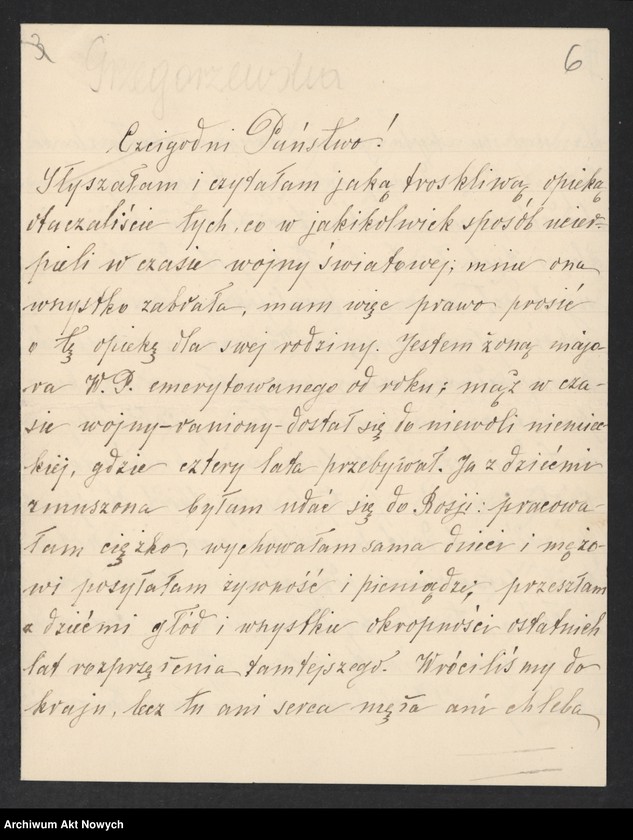 3
6
Grzegorzewska
Czcigodni Państwo!
Słyszałam i czytałam jaką troskliwą opieką
otaczaliście tych, co w jakikolwiek sposób ucier-
pieli w czasie wojny światowej; mnie ona
wszystko zabrała, mam więc prawo prosić
o tę opiekę dla swej rodziny. Jestem żoną majo
ra W.P. emerytowanego od roku; mąż w cza-
sie wojny-raniony-dostał się do niewoli niemiec
kiej, gdzie cztery lata przebywał. Ja z dziećmi
zmuszona byłam udać się do Rosji: pracowa-
łam ciężko, wychowałam sama dzieci i mężo-
wi posyłałam żywność i pieniądze; przeszłam
z dziećmi głód i wszystkie okropności ostatnich
lat rozprzężenia tamtejszego. Wróciliśmy do
kraju, lecz tu ani serca męża ani chleba
Archiwum Akt Nowych